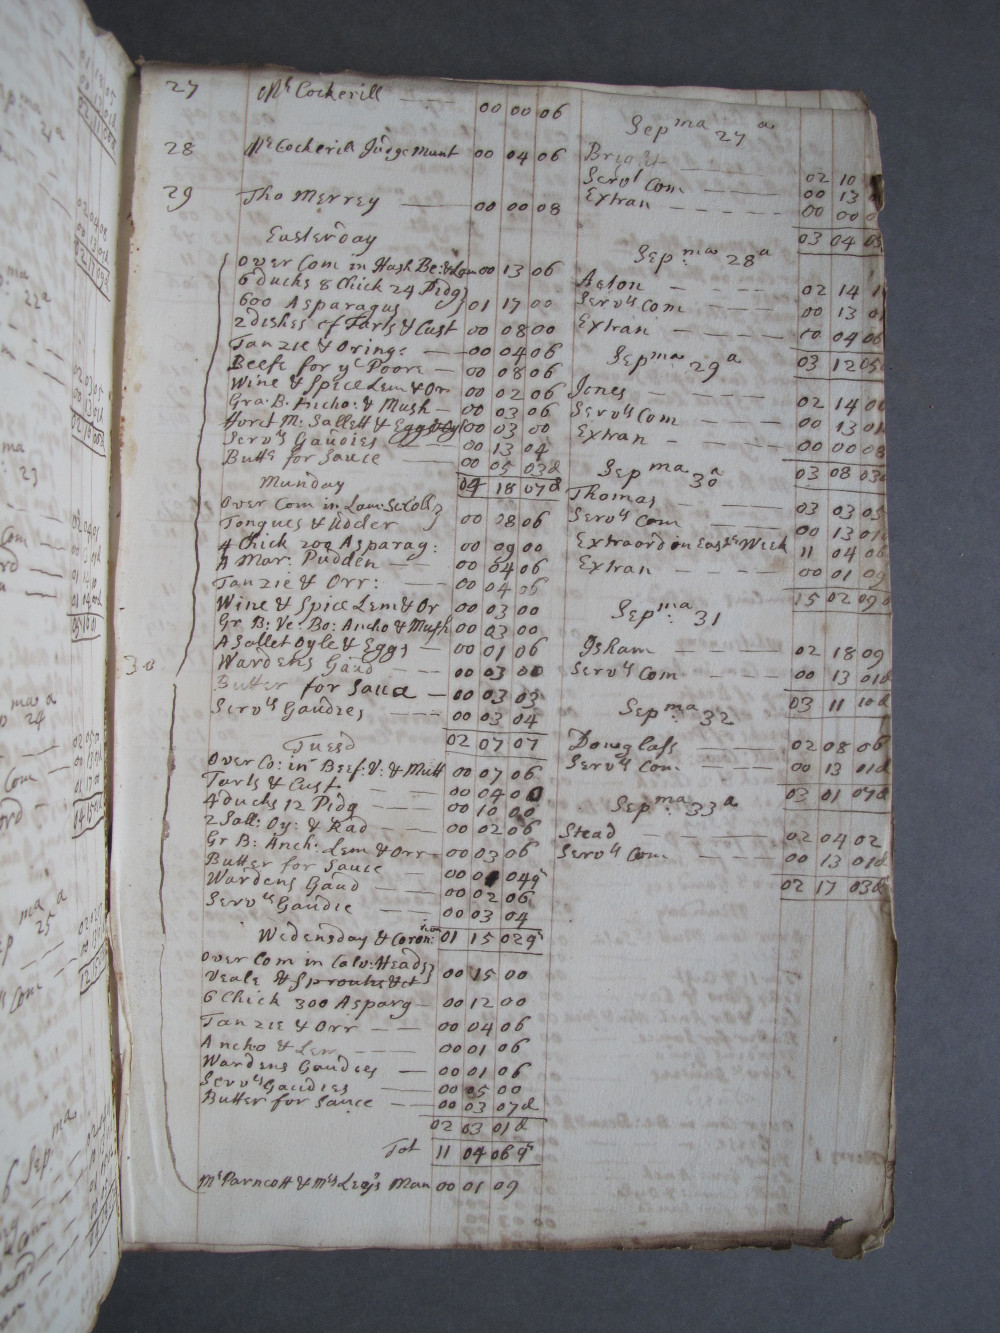 27 Mr Cockerill 00 00 06
28 Mr Cockerill Judge Munt 00 04 06
29 Tho Merrey 00 00 08
Easterday
Over Com in Hash Be: & Lam 00 13 06
6 ducks 8 Chick 24 Pidg
600 Asparagus 01 17 00
2 dishes of Tarts & Cust 00 08 00
Tanzie & Oring: 00 04 06
Beefe for ye Poore 00 08 06
Wine & Spice Lem & Or 00 02 06
Gra: B. Ancho: & Mush 00 03 06
M: Sallett & 00 03 00
Servts Gaudies 00 13 04
Buttr for Sauce 00 05 03d
Munday 04 18 07d
Over Com in Lam
Tongues & Udder 00 08 06
4 Chick 200 Asparag: 00 09 00
A Mar: Pudden 00 04 06
Tanzie & Orr: 00 04 06
Wine & Spice Lem & Or 00 03 00
Gr B: Ve: Bo: Ancho & Mush 00 03 00
A Sallet Oyle & Eggs 00 01 06
30 Wardens Gaud 00 03 00
Butter for Sauce 00 03 03
Servts Gaudies 00 03 04
02 07 07
Tuesd
Over Co: in Beef: V: & Mutt 00 07 06
Tarts & Cust 00 04 00
4 ducks 12 Pidg 00 10 00
2 Sall: Oy: & Rad 00 02 06
Gr B: Anch: Lem & Orr 00 03 06
Butter for Sauce 00 04q
Wardens Gaud 00 02 06
Servts Gaudie 00 03 04
Wedensday & Coron: 01 15 02q
Over Com in Calv: Heads
Veale & Sprouts &ct 00 15 00
6 Chick 300 Asparg 00 12 00
Tanzie & Orr 00 04 06
Ancho & Lem 00 01 06
Wardens Gaudies 00 01 06
Servts Gaudies 00 05 00
Butter for Sauce 00 03 07d
02 03 01d
Tot 11 04 06q
Mr Parncott & Mrs Man 00 01 09
Sepma 27a
Bright 02 10
Servts Com 00 13
Extran 00 00
03 04 03
Sepma 28a
Aston 02 14
Servts Com 00 13 01
Extran 00 04 06
03 12 05
Sepma 29a
Jones 02 14 06
Servts Com 00 13 01
Extran 00 00 08
03 08 03
Sepma 30a
Thomas 03 03 05
Servts Com 00 13 01
Extraord in Eastr Week 11 04 06
Extran 00 01 09
15 02 09
Sepma 31
Isham 02 18 09
Servts Com 00 13 01d
03 11 10d
Sepma 32
Dowglass 02 08 06
Servts Com 00 13 01d
03 01 07d
Sepma 33a
Stead 02 04 02
Servts Com 00 13 01d
02 17 03d